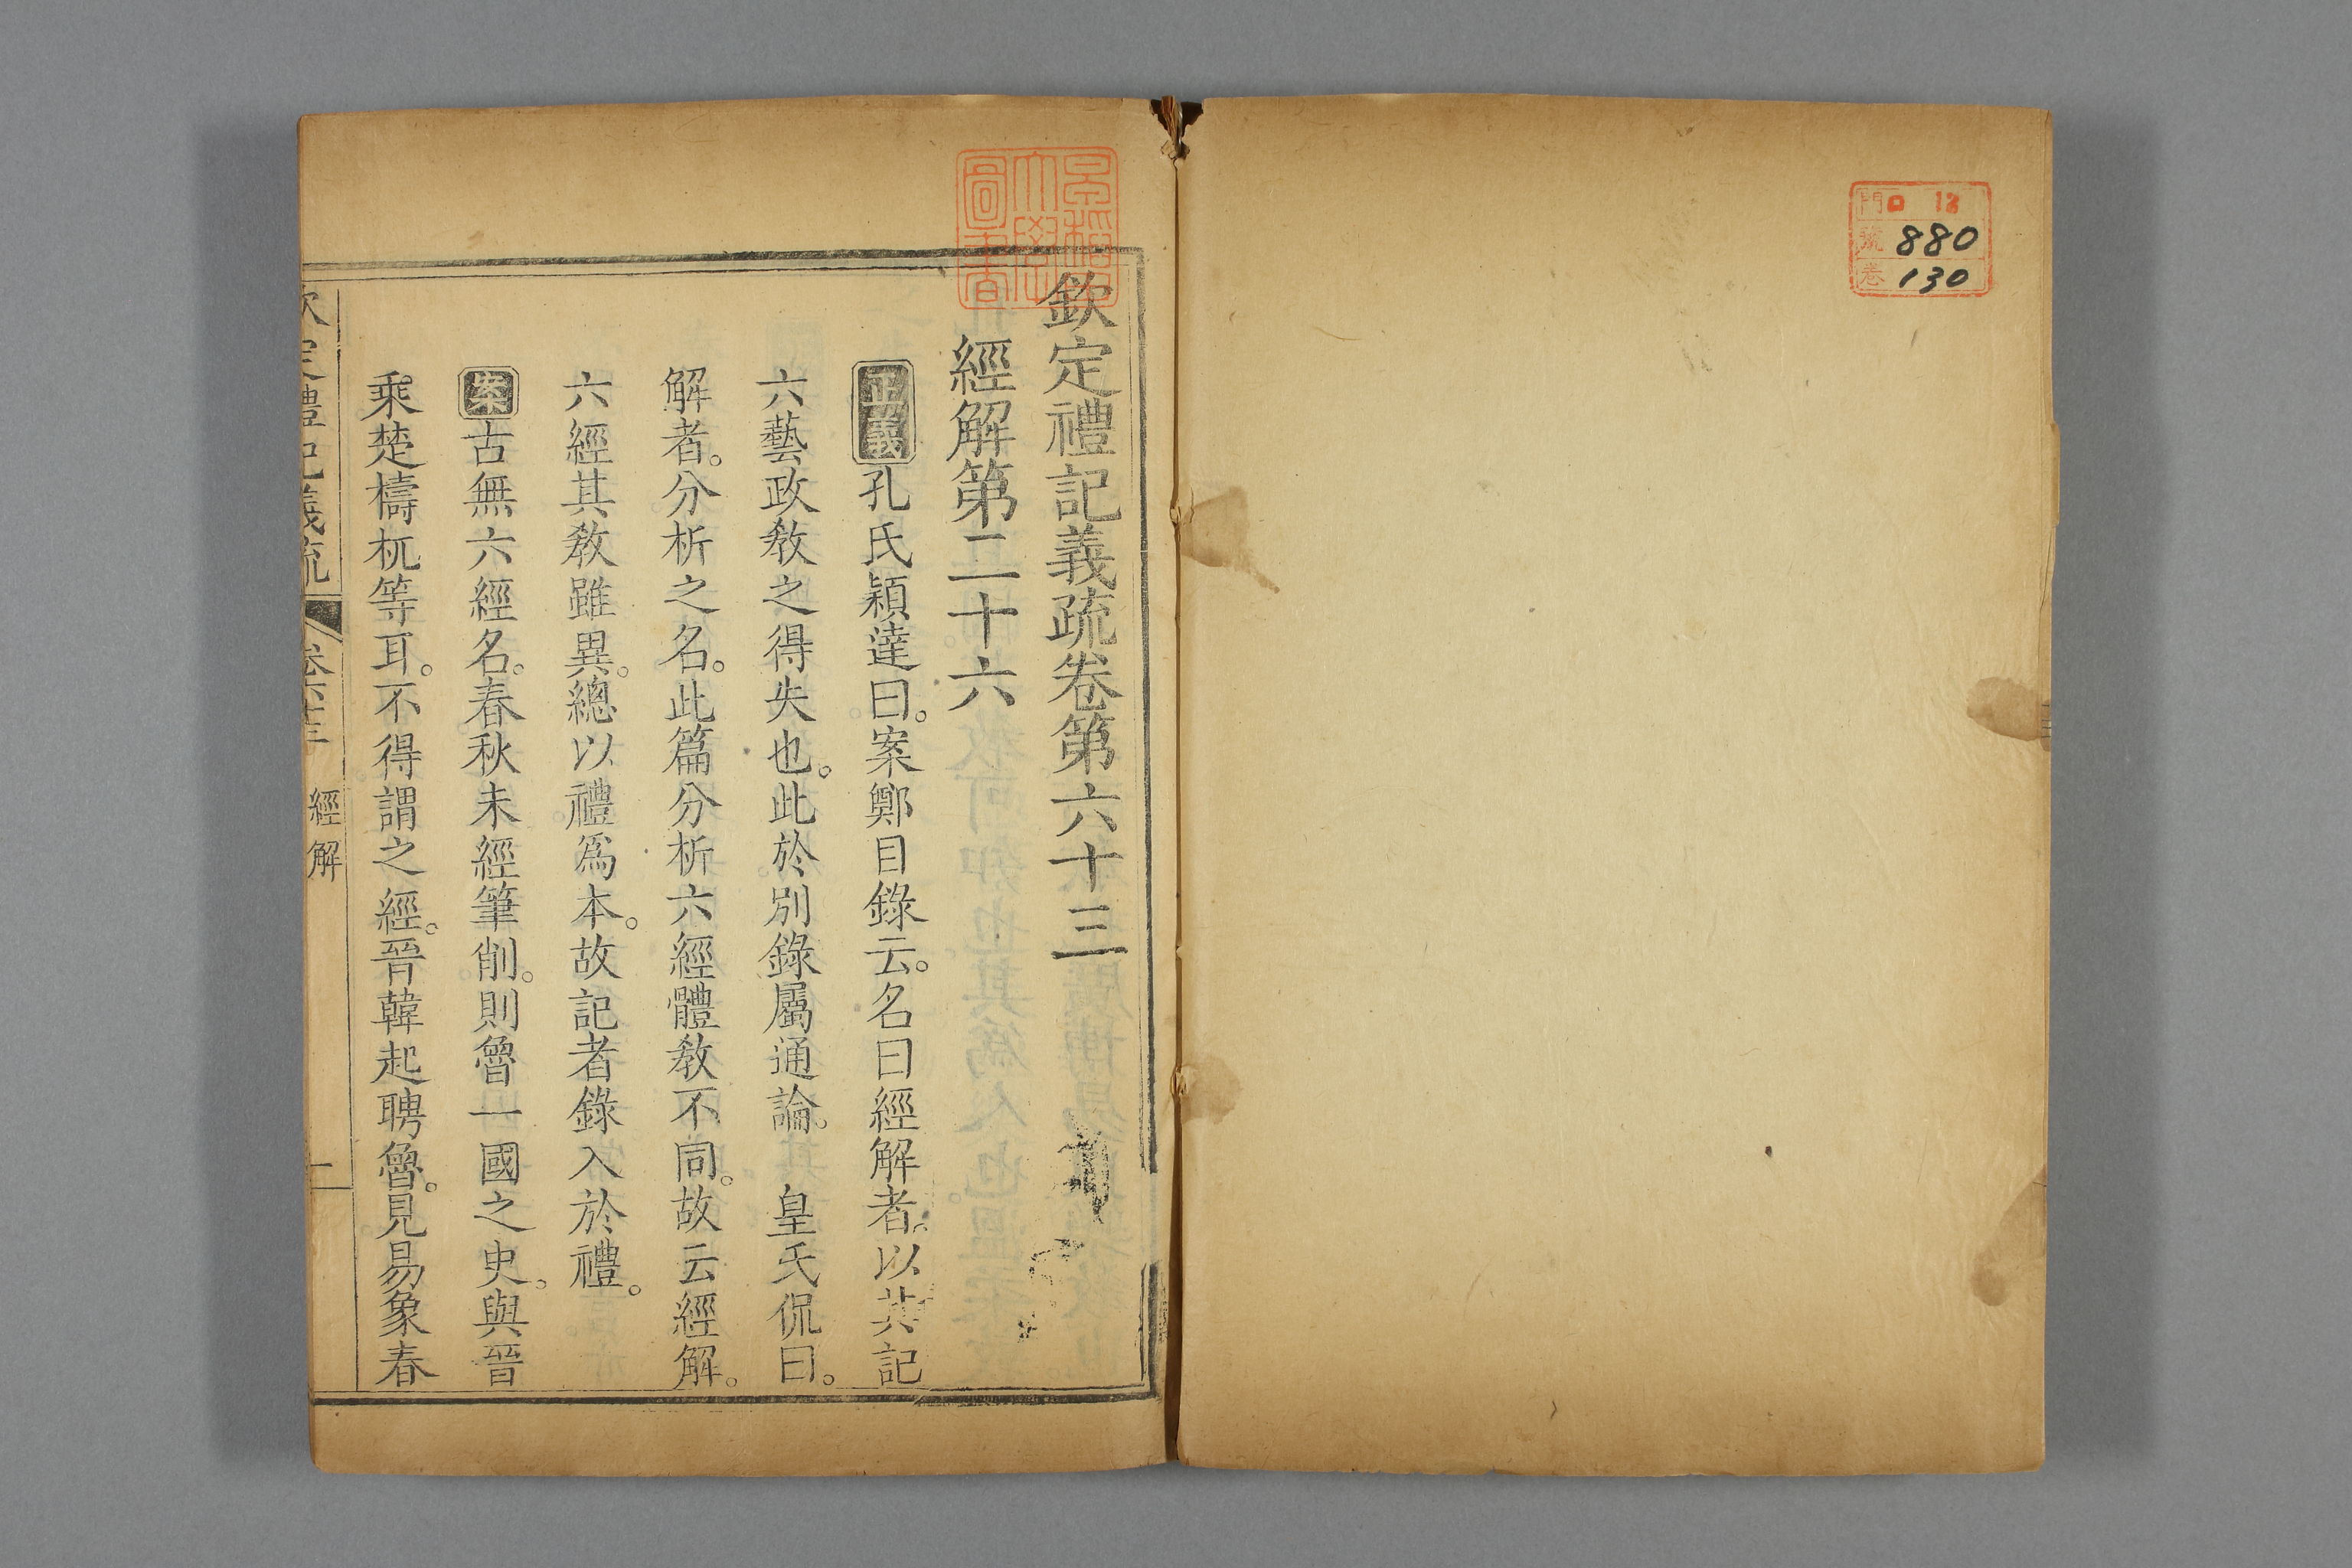 門 ロ 12
號 880
卷 130
早稻田大學圖書
欽定禮記義疏卷第六十三
經解第二十六
正義孔氏穎達曰。案鄭目錄云。名曰經解者。以其記
六藝政敎之得失也。此於別錄屬通論。 皇氏侃曰。
解者。分析之名。此篇分析六經體敎不同。故云經解。
六經其敎雖異。總以禮爲本。故記者錄入於禮。
案古無六經名。春秋未經筆削。則魯一國之史。與晉
乘楚檮杌等耳。不得謂之經。晉韓起聘魯。見易象春
欽定禮記義疏 卷六十三 經解 一